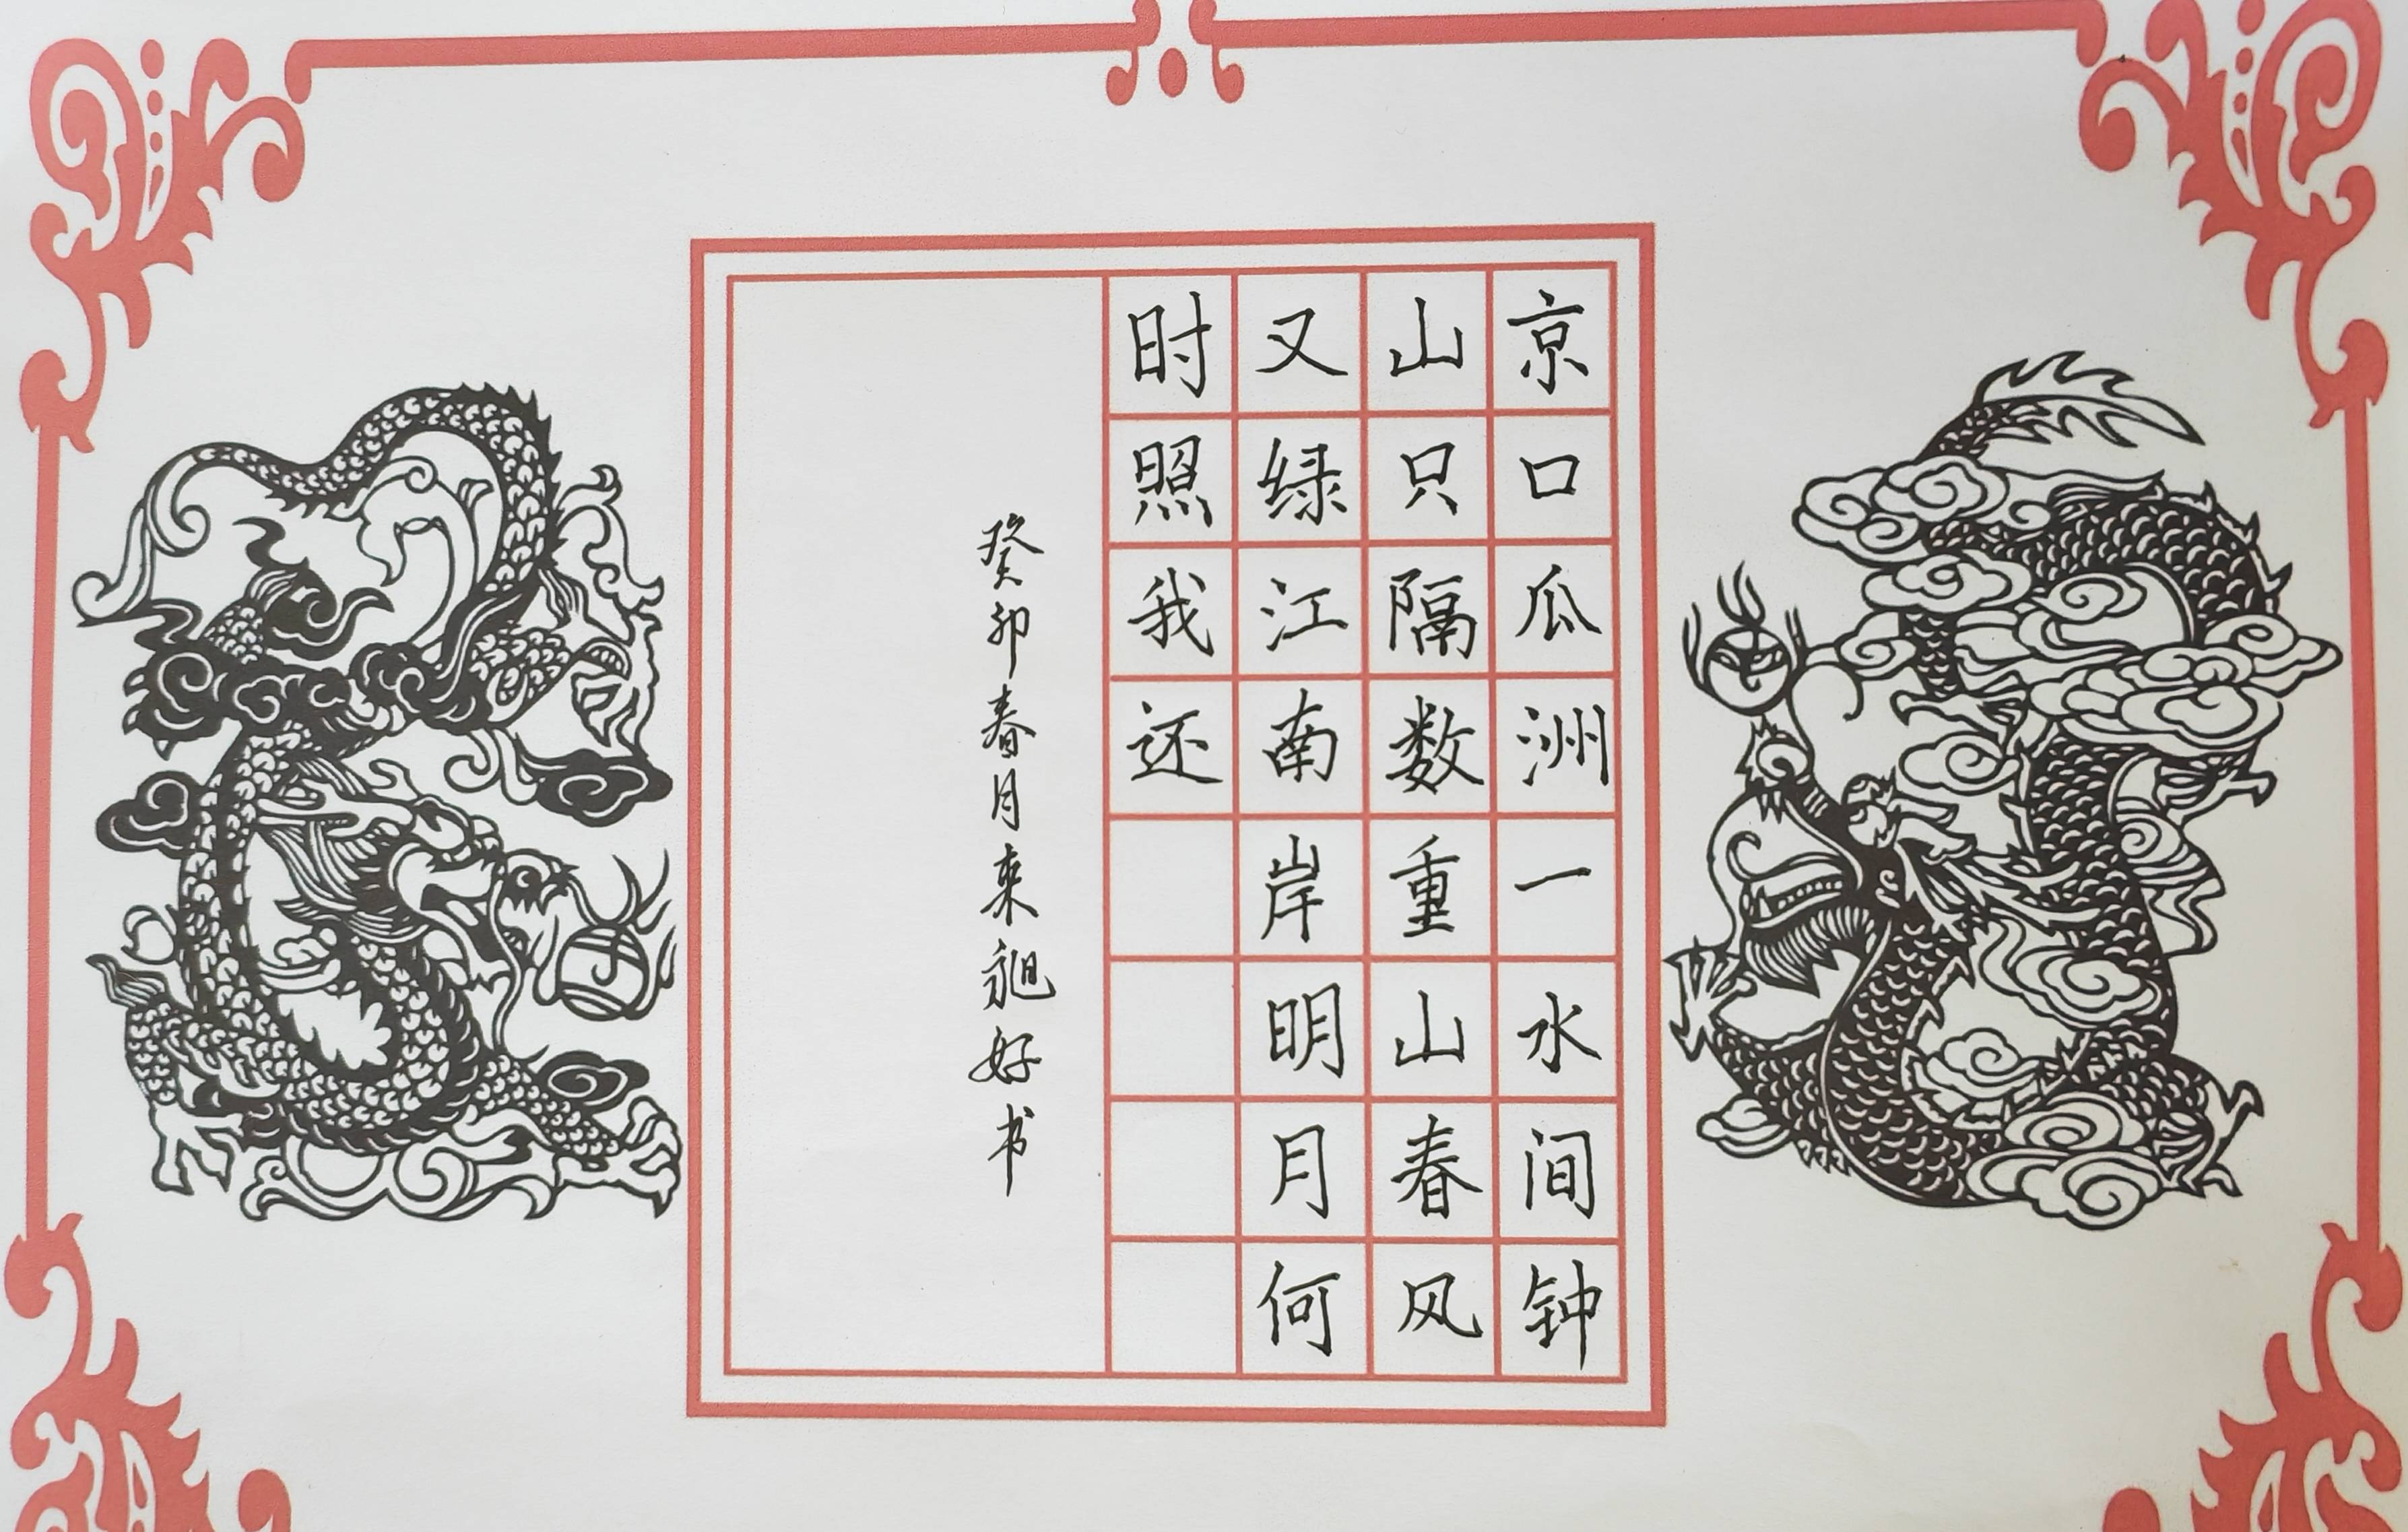 京口瓜洲一水间钟
山只隔数重山春风
又绿江南岸明月何
时照我还
癸卯春月来昶好书